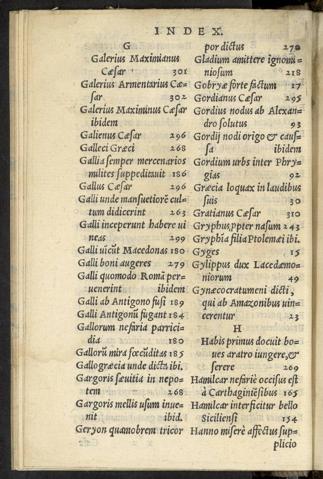 INDEX.
G
Galerius Maximianus
Cæsar 301
Galerius Armentarius Cæ-
sar 302
Galerius Maximinus Cæsar
ibidem
Galienus Cæsar 296
Galleci Græci 268
Gallia semper mercenarios
milites suppeditauit 186
Gallus Cæsar 296
Galli unde mansuetiorē cul-
tum didicerint 263
Galli inceperunt habere ui
neas 299
Galli uicūt Macedonas 180
Galli boni augeres 279
Galli quomodo Romā per-
uenerint ibidem
Galli ab Antigono fusi 189
Galli Antigonū fugant 184
Gallorum nefaria parrici-
dia 180
Gallorū mira fœcūditas 185
Gallogræcia unde dicta ibi.
Gargoris sæuitia in nepo-
tem 268
Gargoris mellis usum inue-
nit ibid.
Geryon quamobrem tricor
por dictus 270
Gladium amittere ignomi-
niosum 218
Gobryæ forte factum 17
Gordianus Cæsar 295
Gordius nodus ab Alexan-
dro solutus 93
Gordij nodi origo & caus-
sa ibidem
Gordium urbs inter Phry-
gias 92
Græcia loquax in laudibus
suis 30
Gratianus Cæsar 310
Gryphus ppter nasum 243
Gryphia filia Ptolemæi ibi.
Gyges 15
Gylippus dux Lacedæmo-
niorum 49
Gynæcocratumeni dicti,
qui ab Amazonibus uin-
cerentur 23
H
Habis primus docuit bo-
ues aratro iungere, &
serere 269
Hamilcar nefariè occisus est
à Carthaginēsibus 165
Hamilcar interficitur bello
Siciliensi 154
Hanno miserè affectus sup-
plicio